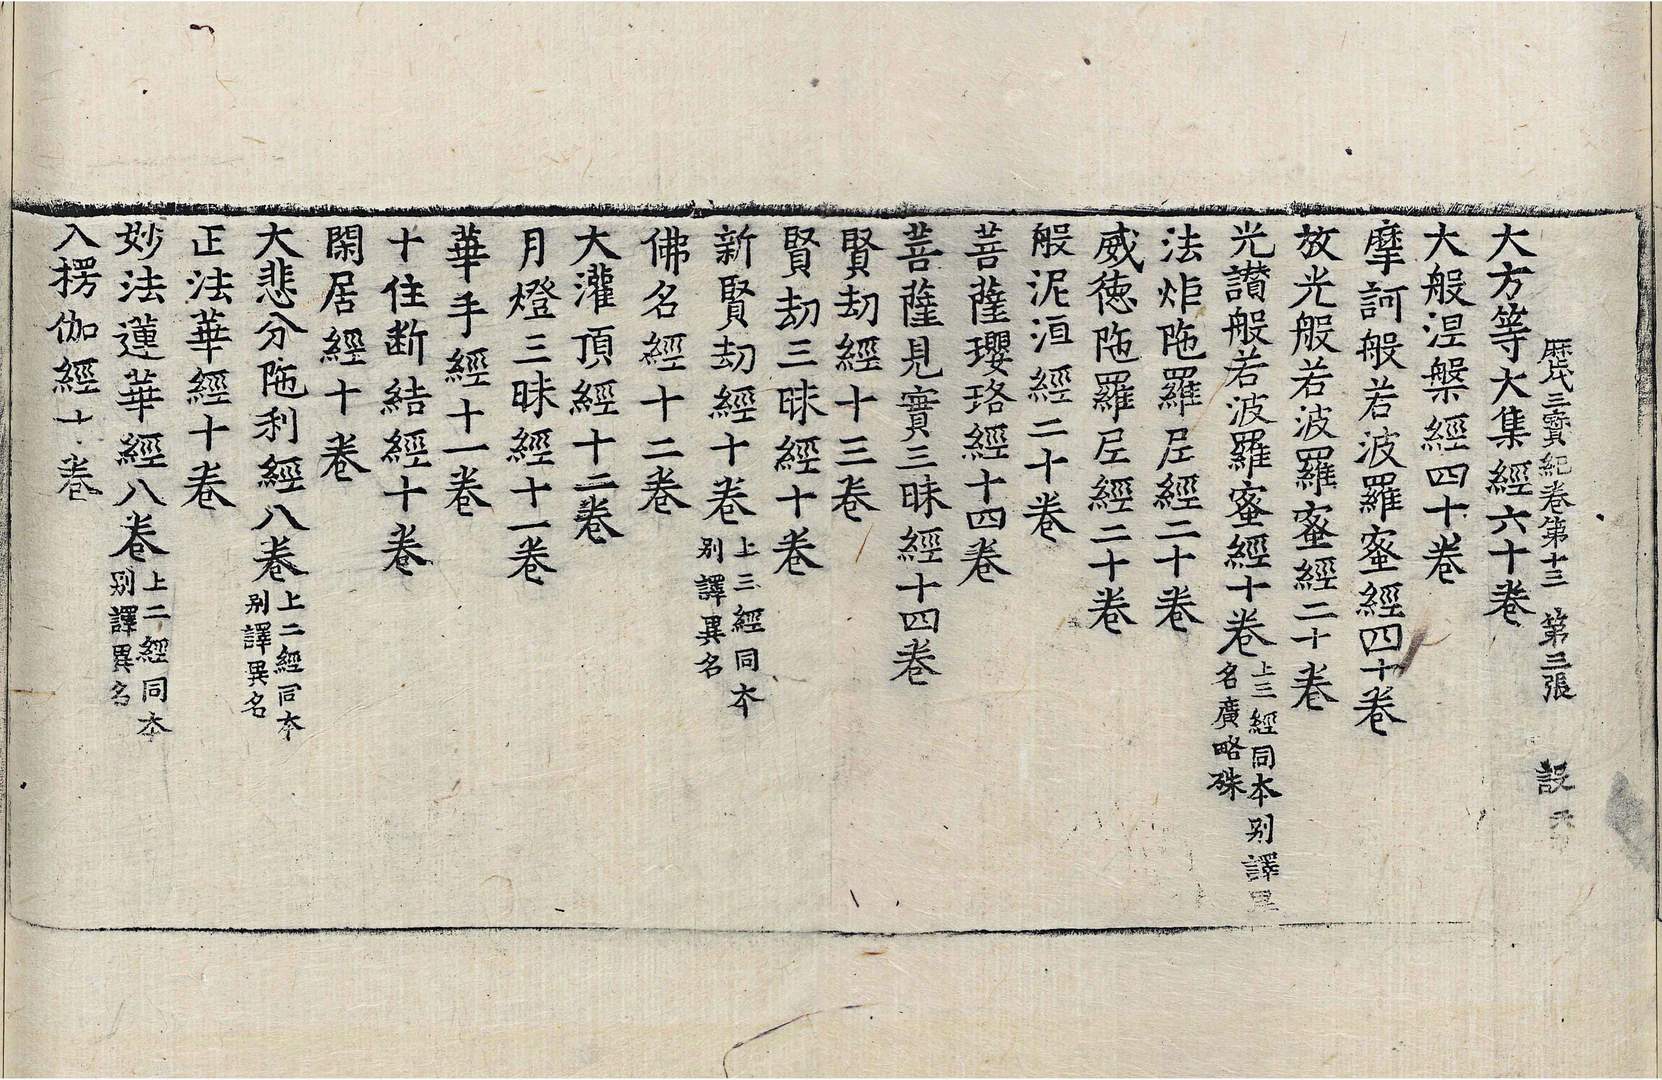 歷氏三寶紀卷第十三 第三張 設
大方等大集經六十卷
大般涅槃經四十卷
摩訶般若波羅蜜經四十卷
放光般若波羅蜜經二十卷
光讃般若波羅蜜經十卷 上三經同本别譯異 名廣略殊
法炬陁羅尼經二十卷
威徳陁羅尼經二十卷
般泥洹經二十卷
菩薩瓔珞經十四卷
菩薩見實三昧經十四卷
賢劫經十三卷
賢劫三昧經十卷
新賢劫經十卷 上三經同本 别譯異名
佛名經十二卷
大灌頂經十二卷
月燈三昧經十一卷
華手經十一卷
十住断結經十卷
閑居經十卷
大悲分陁利經八卷 上二經同本 别譯異名
正法華經十卷
妙法蓮華經八卷 上二經同本 别譯異名
入楞伽經十卷